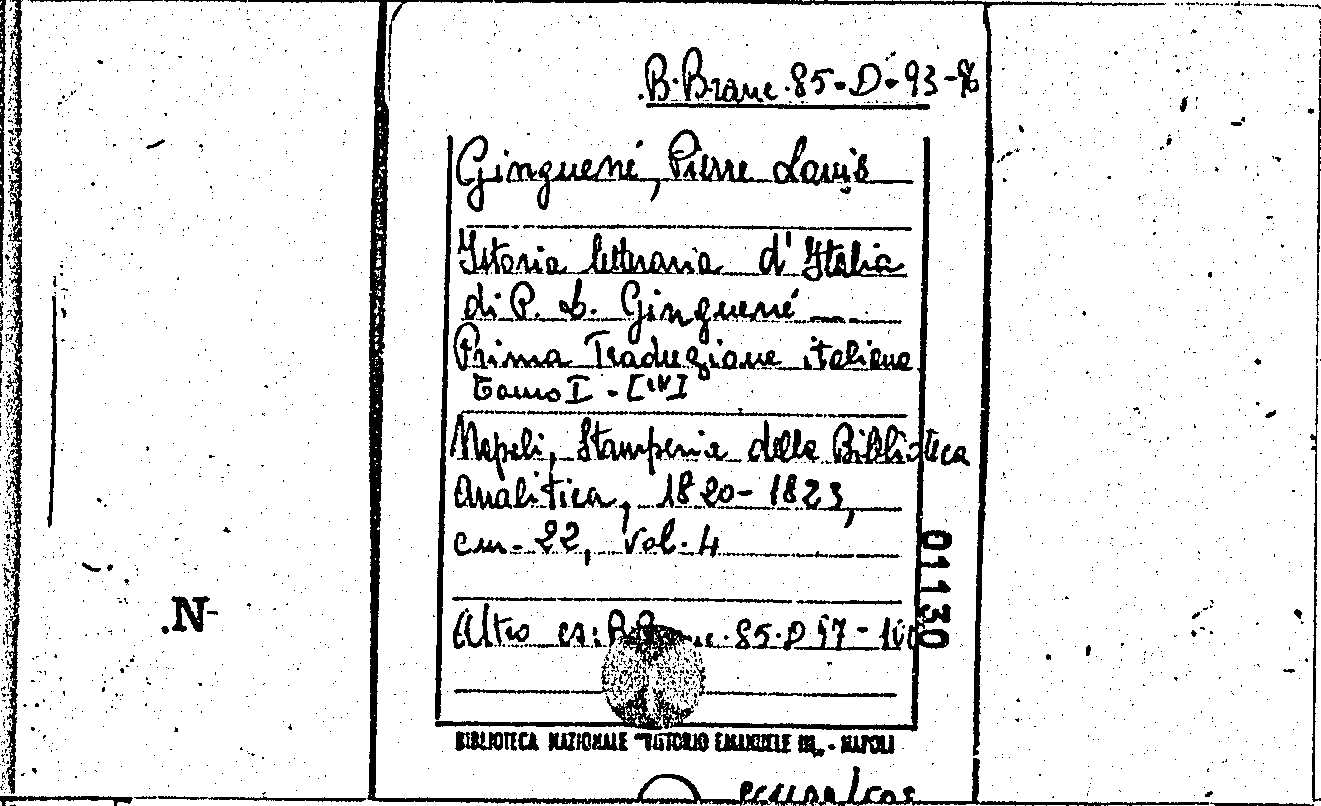 B. Branc. 85. D. 93-96
Ginguené, Pierre Louis
Istoria letteraria d'Italia
di P. L. Ginguené
Prima Traduzione italiana
Tomo I - [IV]
Napoli, Stamperia della Biblioteca
Analitica, 1820-1823,
cm. 22, vol. 4
01130
.N-
Altro es: B. Branc. 85. D 97-100
BIBLIOTECA NAZIONALE "VITTORIO EMANUELE III" - NAPOLI